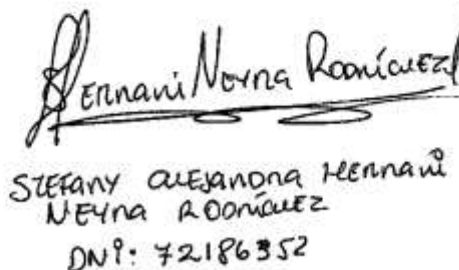 Hernani Neyra Rodríguez
STEFANY ALEJANDRA HERNANI
NEYRA RODRÍGUEZ
DNI: 72186352